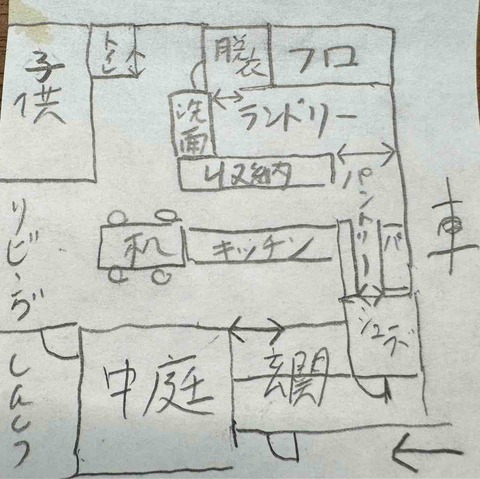 子供
トイレ
脱衣
フロ
洗面
ランドリー
収納
パントリー
パ
車
リビング
机
キッチン
シュラブ
しんしつ
中庭
玄関